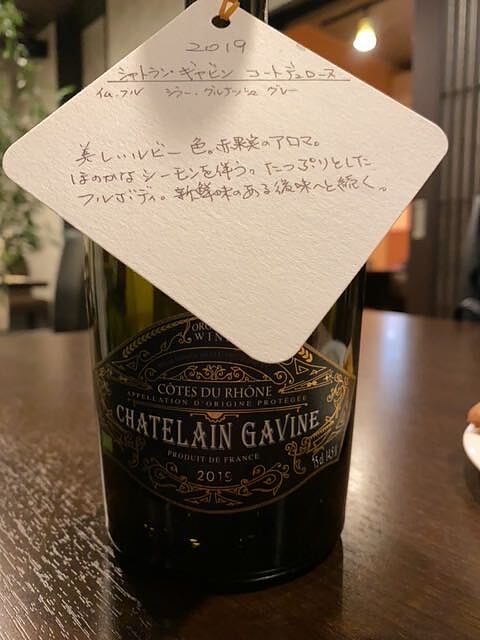 2019
シャトラン・ギャビン コートデュローヌ
シラー・グルナッシュ
美しいルビー色。赤果実のアロマ。
ほのかなシーモンを伴う。たっぷりとした
フルボディ。新鮮味のある後味へと続く。
WINE
CÔTES DU RHÔNE
APPELLATION D'ORIGINE PROTÉGÉE
CHATELAIN GAVINE
PRODUIT DE FRANCE
2019